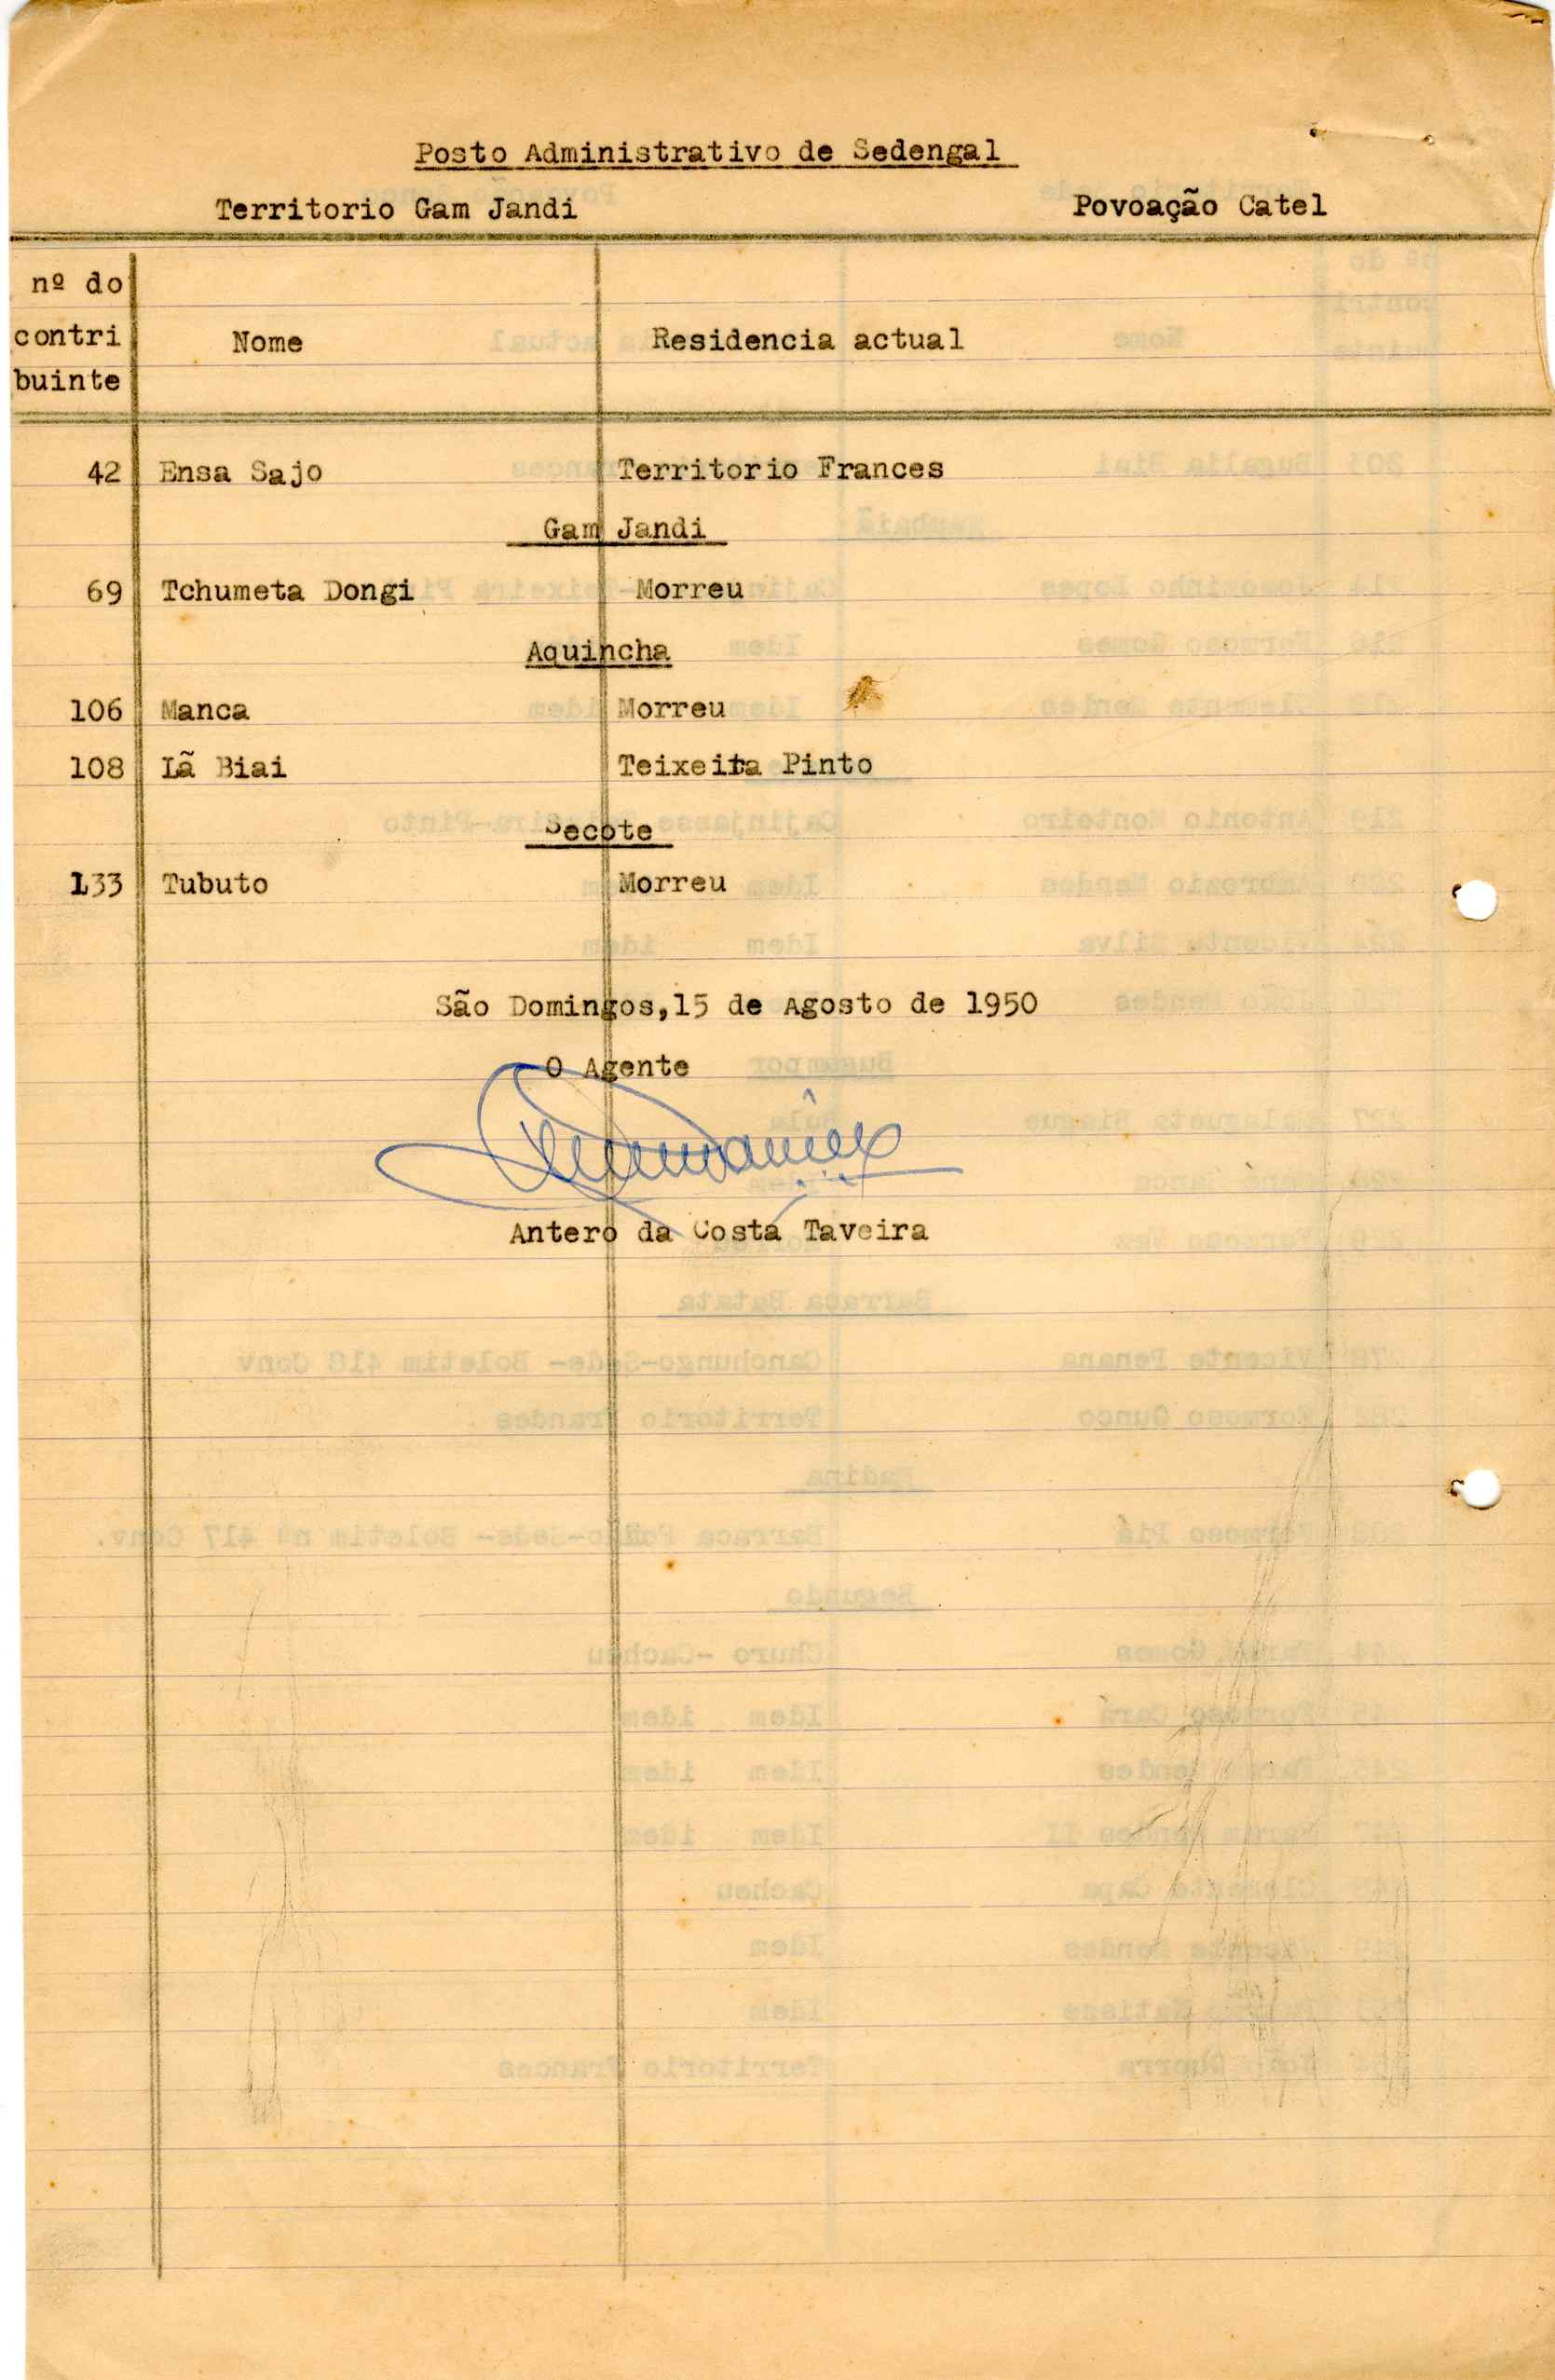 Posto Administrativo de Sedengal
Territorio Gam Jandi Povoação Catel
nº do
contri Nome Residencia actual
buinte
42 Ensa Sajo Territorio Frances
Gam Jandi
69 Tchumeta Dongi Morreu
Aquincha
106 Manca Morreu
108 Lã Biai Teixeira Pinto
Secote
133 Tubuto Morreu
São Domingos,15 de Agosto de 1950
O Agente
Antero da Costa Taveira